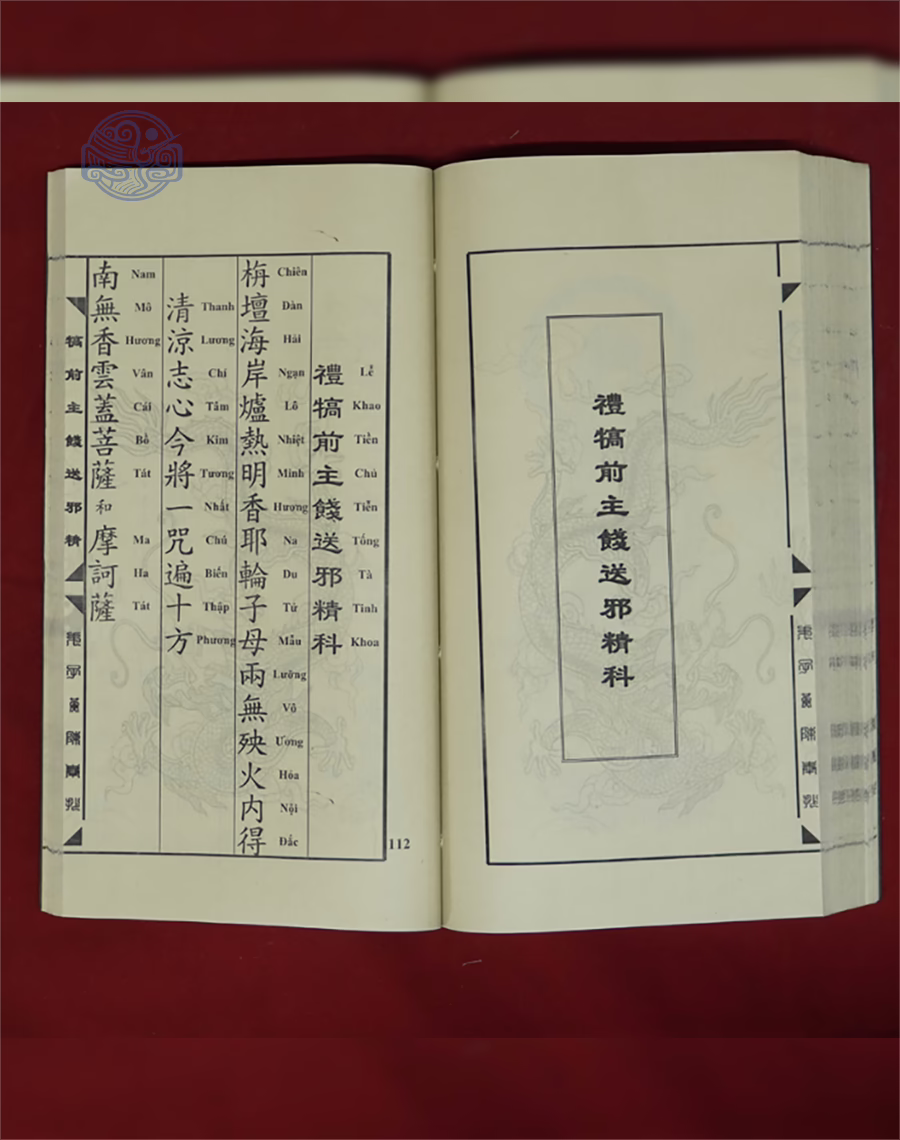 禮犒前主餞送邪精科
Lễ Khao Tiền Chủ Tiễn Tống Tà Tinh Khoa
禮犒前主餞送邪精科
Chiên Đàn Hải Ngạn Lô Nhiệt Minh Hương Na Du Tử Mẫu Lưỡng Vô Ương Hỏa Nội Đắc
栴壇海岸爐熱明香耶輪子母兩無殃火内得
Thanh Lương Chí Tâm Kim Tương Nhất Chú Biến Thập Phương
清涼志心今將一咒遍十方
Nam Mô Hương Vân Cái Bồ Tát Ma Ha Tát
南無香雲蓋菩薩和摩訶薩
犒前主餞送邪精
112